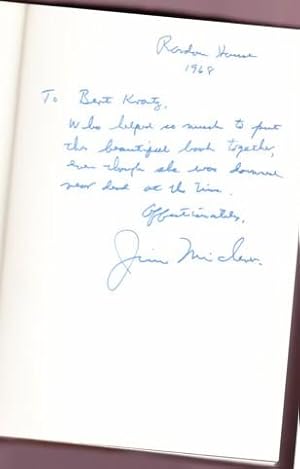 Random House
1968
To Bert Krantz,
Who helped so much to put
this beautiful book together,
even though she was
near dead at the time.
Affectionately,
Jim Michener.